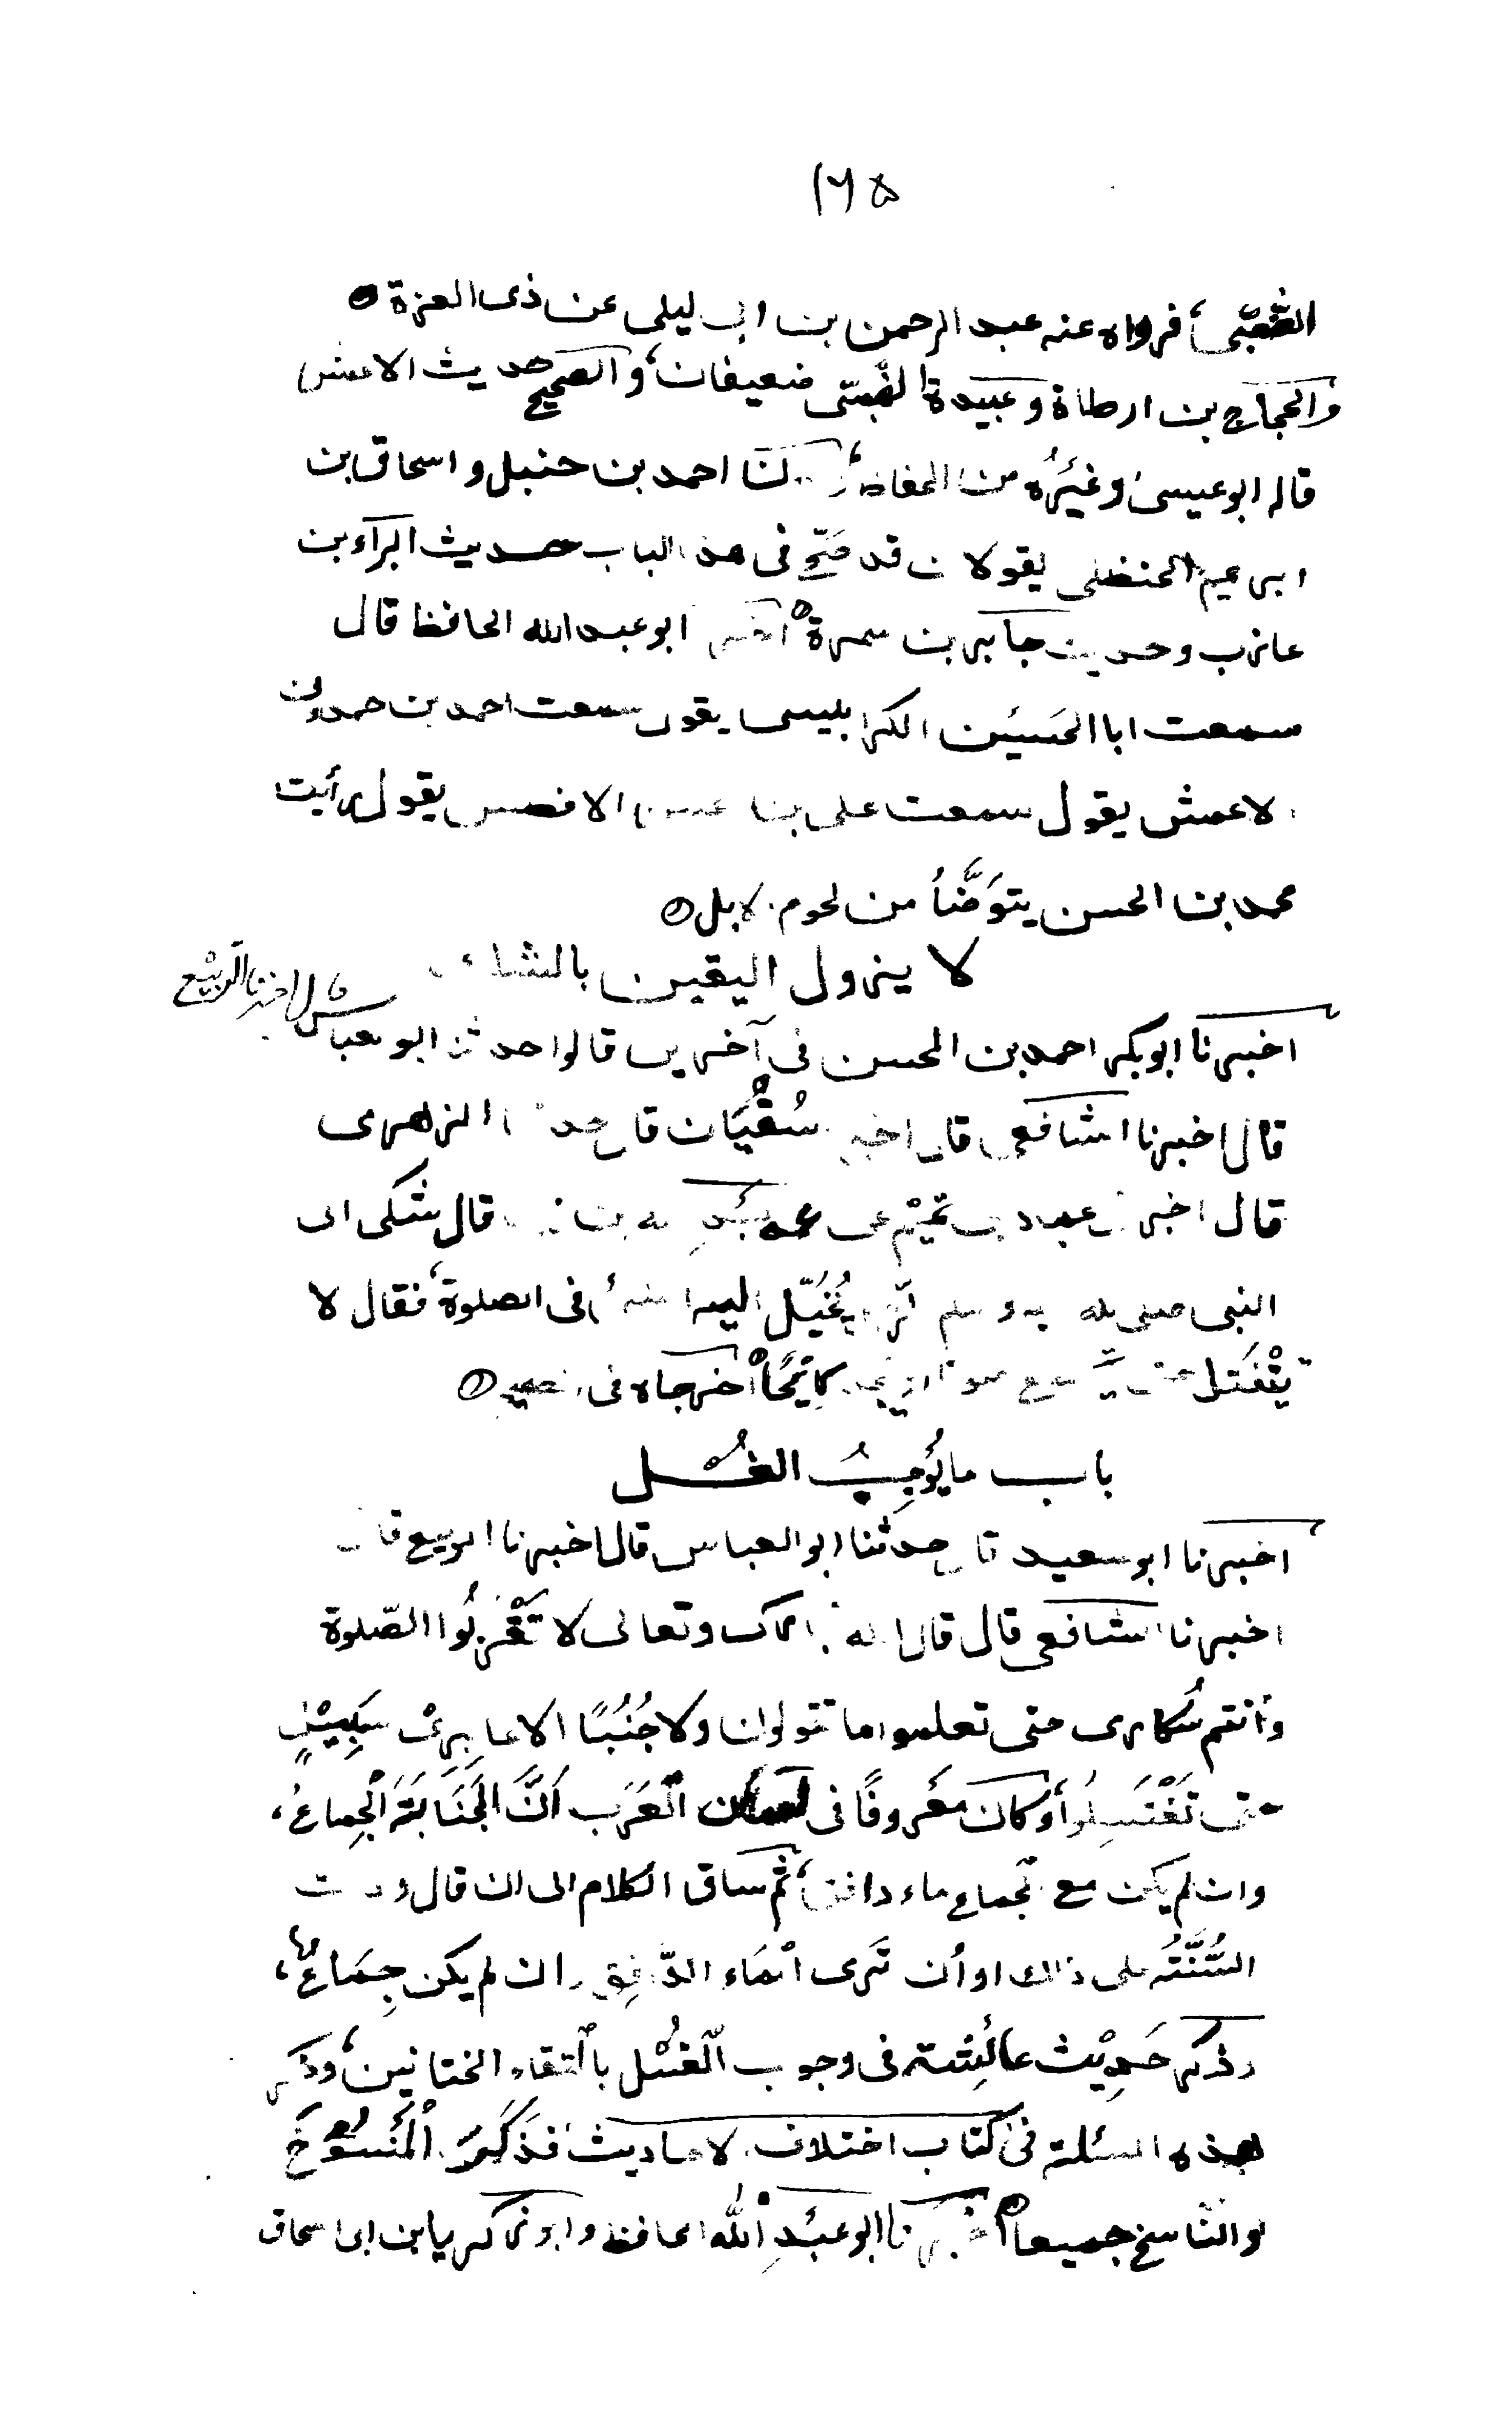 ١٦٥
الضَّبِّي، فرواه عنه عبد الرحمن بن ابى ليلى عن ذى الغرة ه
والحجاج بن ارطاة وعبيدة الضّبّى ضعيفان، والصحيح حديث الاعمش
قاله ابو عيسى وغيره من الحفاظ، احمد بن حنبل و اسحاق بن
ابرهيم الحنظلى يقولان قد صَحّ فى هذا الباب حديث البرآء بن
عازب وحديث جابر بن سمرة ه اخبرنا ابو عبد الله الحافظ قال
سمعت ابا الحسين الكرابيسى يقول سمعت احمد بن حمدون
الاعمش يقول سمعت على بن الافطس يقول رأيت
محمد بن الحسن يتوَضَّأُ من لحوم الابل ه
لا يزول اليقين بالشك
اخبرنا ابو بكر احمد بن الحسن فى آخرين قالوا حدثنا ابو العباس قال اخبرنا الربيع
قال اخبرنا الشافعى قال اخبرنا سُفْيَان قال حدثنا الزهرى
قال اخبرنى عباد بن تميم عن عمه عبد الله بن زيد قال شكى الى
النبى صلى الله عليه وسلم الرجل يُخَيَّل اليه الشئ فى الصلوة، فقال لا
ينْفَتل حتى يسمع صوتا او يجد رِيْحًا، اخرجاه فى الصحيح ه
باب ما يُوجِبُ الغُسْل
اخبرنا ابو سعيد قال حدثنا ابو العباس قال اخبرنا الربيع قال
اخبرنا الشافعى قال قال الله تبارك وتعالى لا تَقْرَبُوا الصّلوة
وأنتم سُكارى حتى تعلموا ما تقولون ولا جُنُبًا الا عابِرِىْ سَبِيْلٍ
حتى تَغْتَسِلُوا، وكان مَعْروفًا فى لسان الْعَرَب اَنَّ الْجَنَابَةَ الْجِماعُ،
وان لم يكن مع الجماع ماء دافق، ثم ساق الكلام الى ان قال ودلت
السُّنَّتُه على ذلك او أن تَرى الْمَاء الدَّافِق وان لم يكن جِمَاعٌ،
وذكر حَدِيْث عائِشة فى وجوب الْغُسْل بالْتقاء الختانين، وذكر
هذه المسئلة فى كتاب اختلاف الاحاديث فذَكَرَ الْمَنْسُوْخَ
والنّاسخ جميعا ه اخبرنا ابو عَبْدِ اللّٰه الحافظ وابو زكريا بن ابى اسحاق